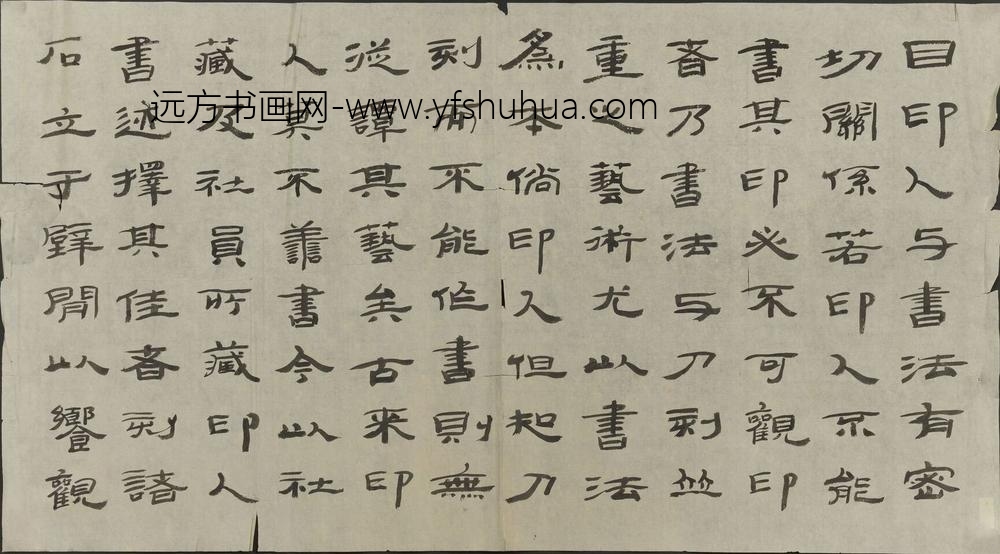 目印人与書法有密
切關係若印人不能
書其印必不可觀印
者乃書法与刀刻並
重之藝術尤以書法
為本倘印人但知刀
刻而不能作書則無
從譚其藝矣古来印
人莫不善書今以社
藏及社員所藏印人
書迹擇其佳者刻諸
石立于壁間以饗觀
远方书画网-www.yfshuhua.com